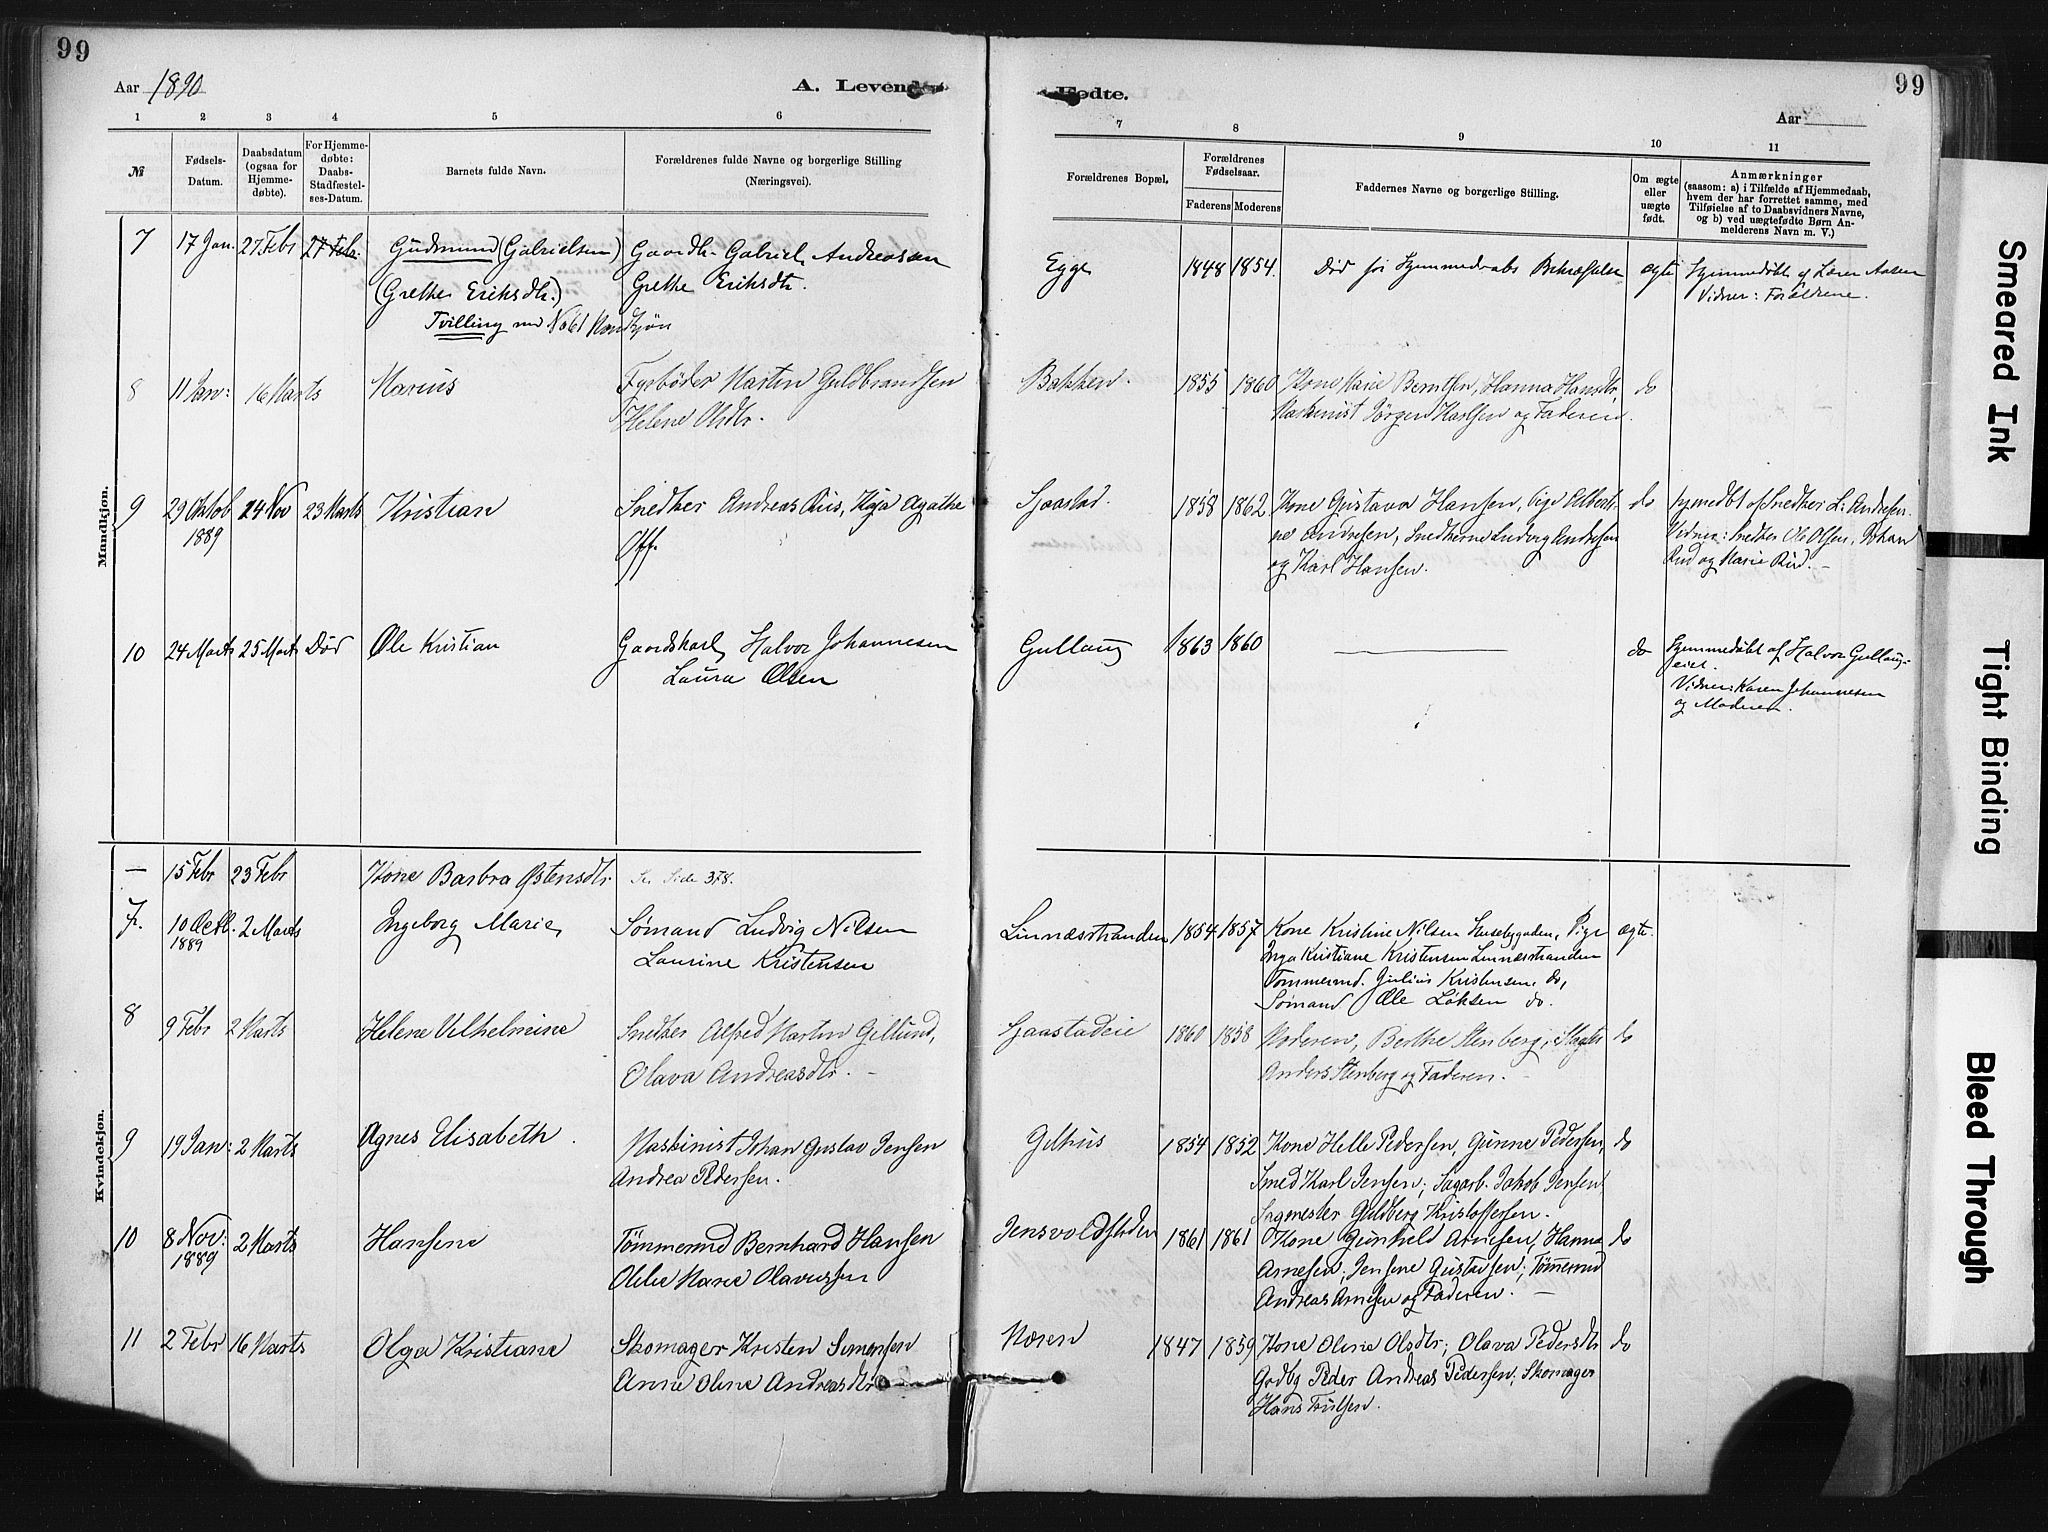 99
99
Aar 1890
A. Levende
Fødte.
Aar
1 2 3 4 5 6
7 8 9 10 11
№
Fødsels-
Datum.
Daabsdatum
(ogsaa for
Hjemme-
døbte).
For Hjemme-
døbte:
Daabs-
Stadfæstel-
ses-Datum.
Barnets fulde Navn.
Forældrenes fulde Navne og borgerlige Stilling
(Næringsvei).
Forældrenes Bopæl.
Forældrenes
Fødselsaar.
Faderens Moderens
Faddernes Navne og borgerlige Stilling.
Om ægte
eller
uægte
født.
Anmærkninger
(saasom: a) i Tilfælde af Hjemmedaab,
hvem der har forrettet samme, med
Tilføielse af to Daabsvidners Navne,
og b) ved uægtefødte Børn An-
melderens Navn m. V.)
Mandkjøn.
7 17 Jan. 27 Febr 27 Febr. Gudmund (Gabrielsen) Gaardb. Gabriel Andreassen
(Grethe Eriksdtr.) Grethe Eriksdtr.
Tvilling med No 61 Mandkjøn
Egge 1848 1854. Død før Hjemmedaabs Bekræftelse ægte Hjemmedøbt af Lærer Aasen
Vidner: Forældrene.
8 11 Jan: 16 Marts Marius Fyrbøder Martin Guldbrandsen
Helene Olsdtr.
Bakken. 1855 1860 Kone Marie Berntsen, Hanna Hansdtr, do
Maskinist Jørgen Karlsen og Faderen.
9 29 Oktob 24 Nov 23 Marts Kristian Snedker Andreas Riis, Kaja Agathe
1889 Off.
Gjaastad. 1858 1862 Kone Gustava Hansen, Pige Alberti- do hjmedbt af Snedker L. Andresen
ne Andresen, Snedkerne Ludvig Andresen Vidner: Snedker Ole Olsen, Johan
og Karl Hansen. Rud og Marie Rud. -
10 24 Marts 25 Marts Død Ole Kristian Gaardskarl Halvor Johannesen
Laura Olsen
Gullaug 1863 1860 do Hjemmedøbt af Halvor Gullaug-
eiet.
Vidner: Karen Johannesen
og Moderen.
Kvindekjøn.
— 15 Febr 23 Febr Kone Barbra Østensdtr. Se Side 378.
7. 10 Octb. 2 Marts Ingeborg Marie Sømand Ludvig Nilsen
1889 Laurine Kristensen
Linnæsstranden 1854 1857 Kone Kristine Nilsen Husebygaden, Pige ægte.
Inga Kristiane Kristensen Linnæsstranden
Tømmermd. Julius Kristensen do,
Sømand Ole Løksen do.
8 9 Febr 2 Marts Helene Vilhelmine Snedker Alfred Martin Gillund,
Olava Andreasdtr. -
Gjaastadeie 1860 1858 Moderen, Berthe Stenberg, Slagter do
Anders Stenberg og Faderen. -
9 19 Jan: 2 Marts Agnes Elisabeth. Maskinist Johan Gustav Jensen
Andrea Pedersen.
Gilhus 1854 1852 Kone Helle Pedersen, Gunne Pedersen, do
Smed Karl Jensen, Sagarb. Jakob Jensen
Sagmester Guldberg Kristoffersen.
10 8 Nov: 2 Marts Hansine Tømmermd Bernhard Hansen
1889 Olilie Marie Olavessen
Jensvoldfladen 1861 1861 Kone Gunhild Arnesen, Hanna do
Arnesen, Jensine Gustavsen, Tømmermd
Andreas Arnesen og Faderen. -
11 2 Febr 16 Marts Olga Kristiane Skomager Kristen Simensen
Anne Oline Andreasdtr
Moren 1847 1859 Kone Oline Olsdtr; Olava Pedersdtr do
Gadbg Peder Andreas Pedersen; Skomager
Hans Trulsen.
Smeared Ink
Tight Binding
Bleed Through